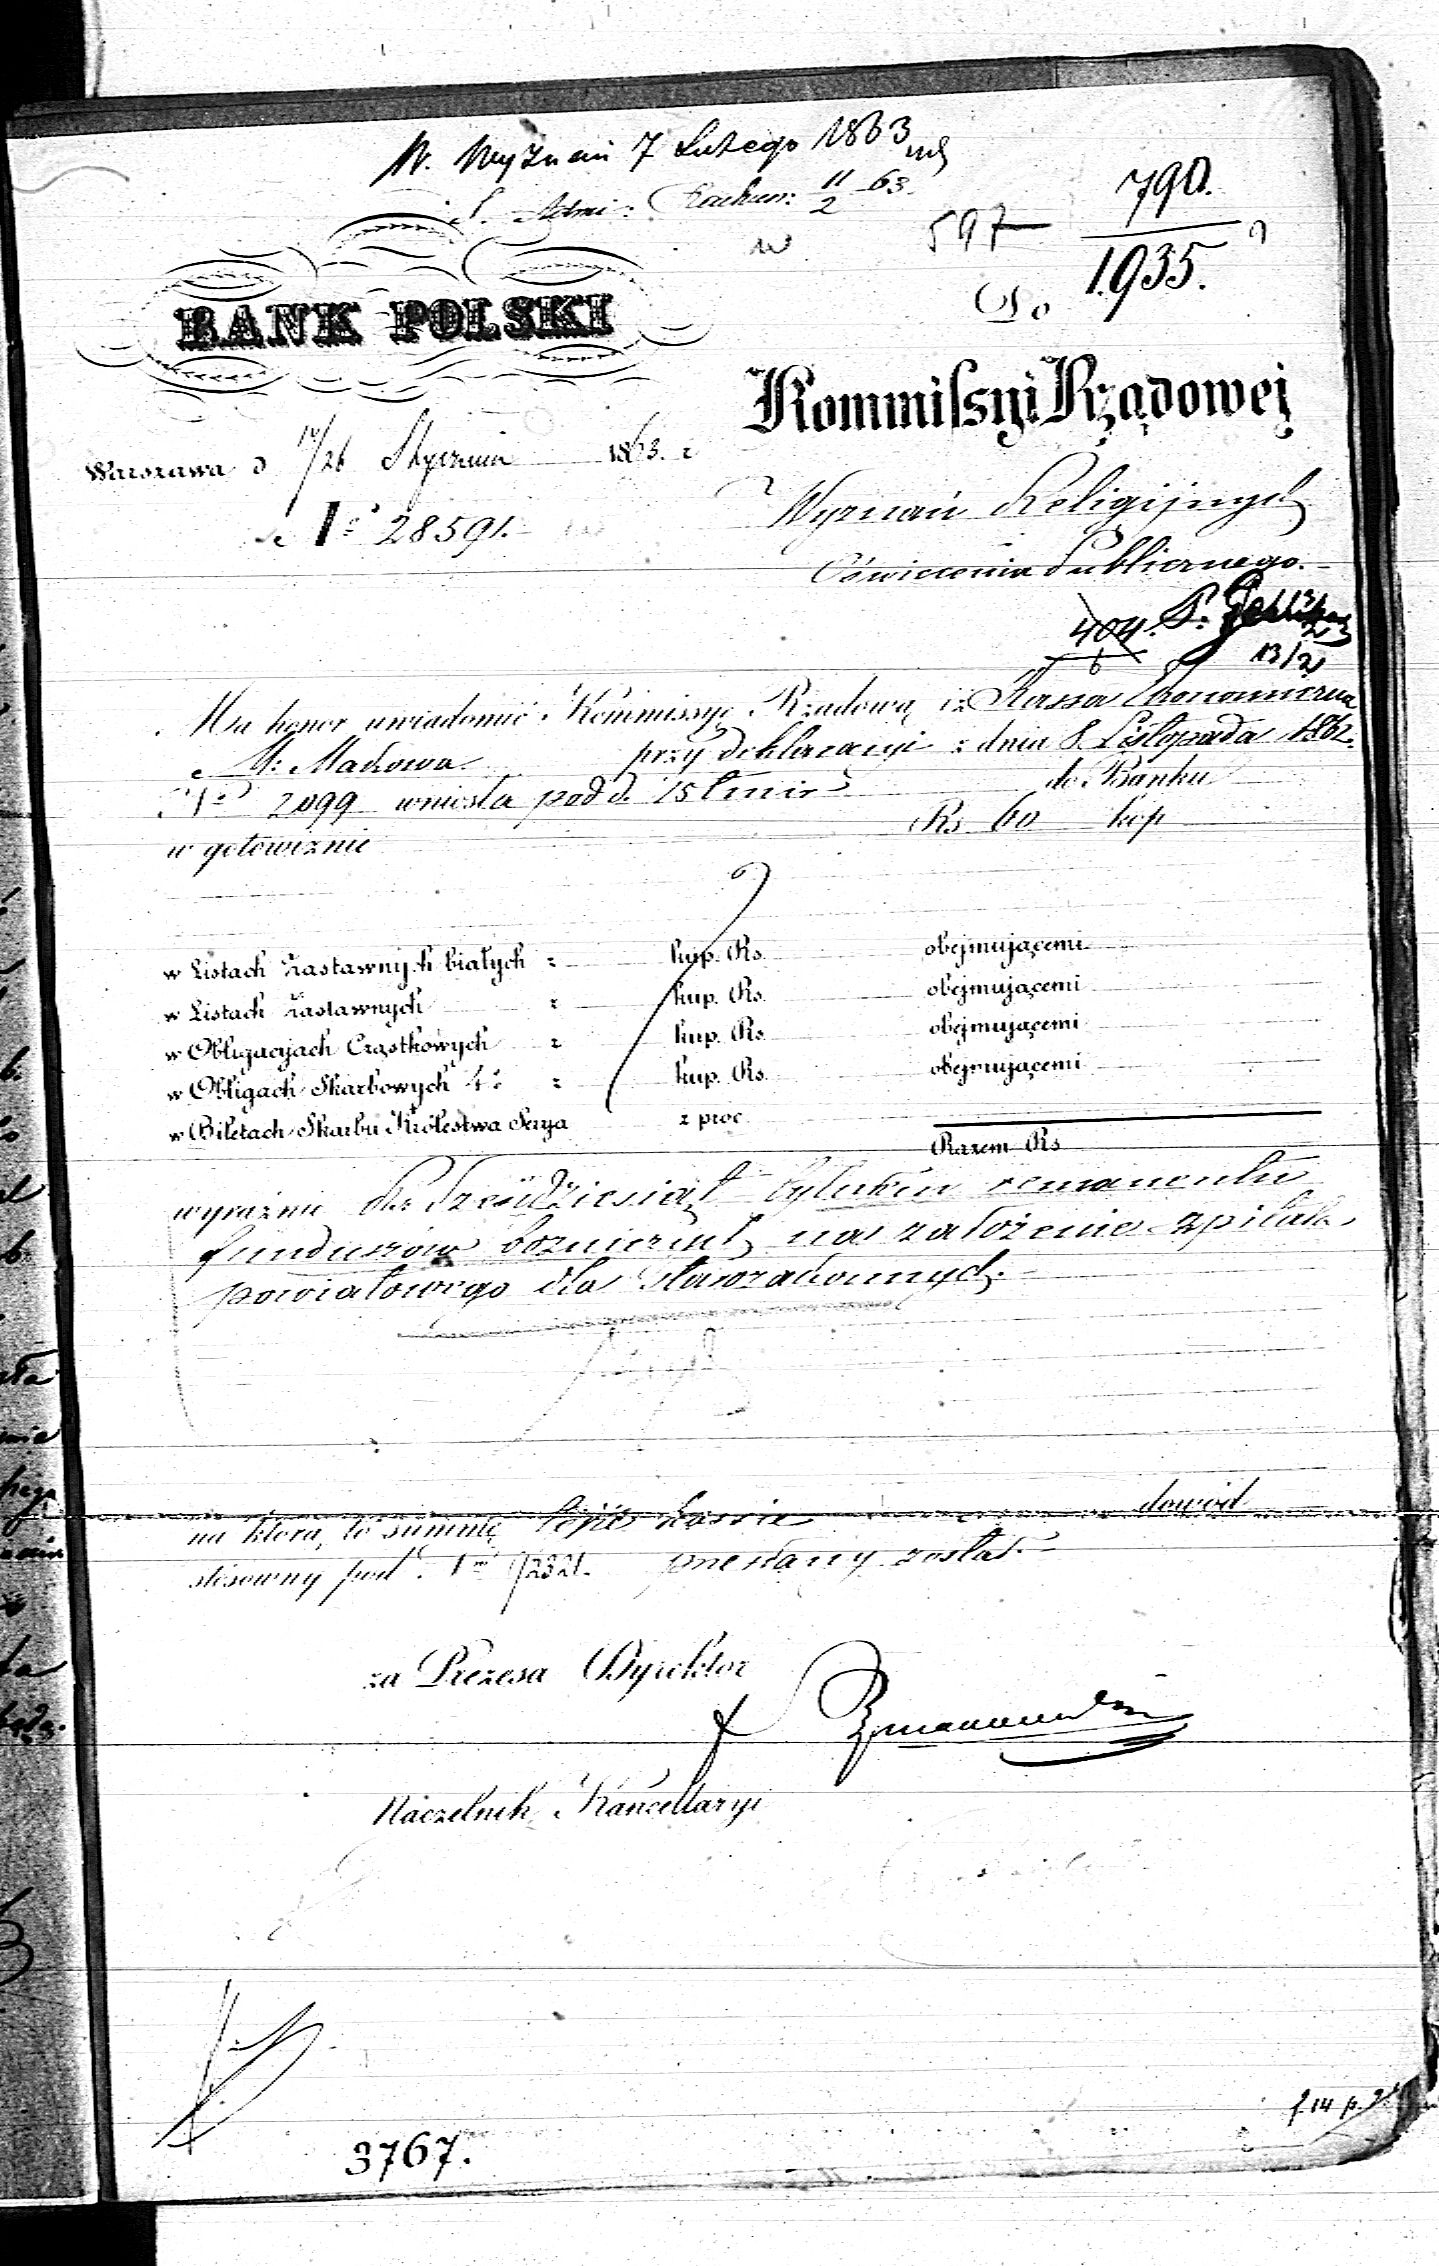 W. Wyznań 7 Lutego 1863
S. Admi: Rachun: 11/2 63.
w 597 790.
1935.
BANK POLSKI
Do
Kommissyi Rządowej
Warszawa d 14/26 Stycznia 1863. r
Nº 28591.
Wyznań Religijnych
Oświecenia Publicznego.
404.
6
13/2
Ma honor uwiadomić Kommissyę Rządową iż Kassa Ekonomiczna
M: Makowa przy deklaracyi z dnia 8 Listopada 1862.
Nº 2099 wniosła pod d. 15 t mir do Banku
w gotowiznie Rs 60 kop
w Listach Zastawnych białych z kup. Rs obejmującemi
w Listach Zastawnych z kup. Rs obejmującemi
w Obligacyjach Cząstkowych z kup. Rs obejmującemi
w Obligach Skarbowych 4% z kup. Rs obejmującemi
w Biletach Skarbu Królestwa Serya z proc
Razem Rs
wyraźnie Rs Sześćdziesiąt tytułem remanentu
funduszów bożniczych na założenie szpitala
powiatowego dla Starozakonnych.
na którą to summę tejże kassie dowód
stosowny pod Nº 1/2321. przesłany został
za Prezesa Dyrektor
Naczelnik Kancellaryi
3767.
f. 14 p.